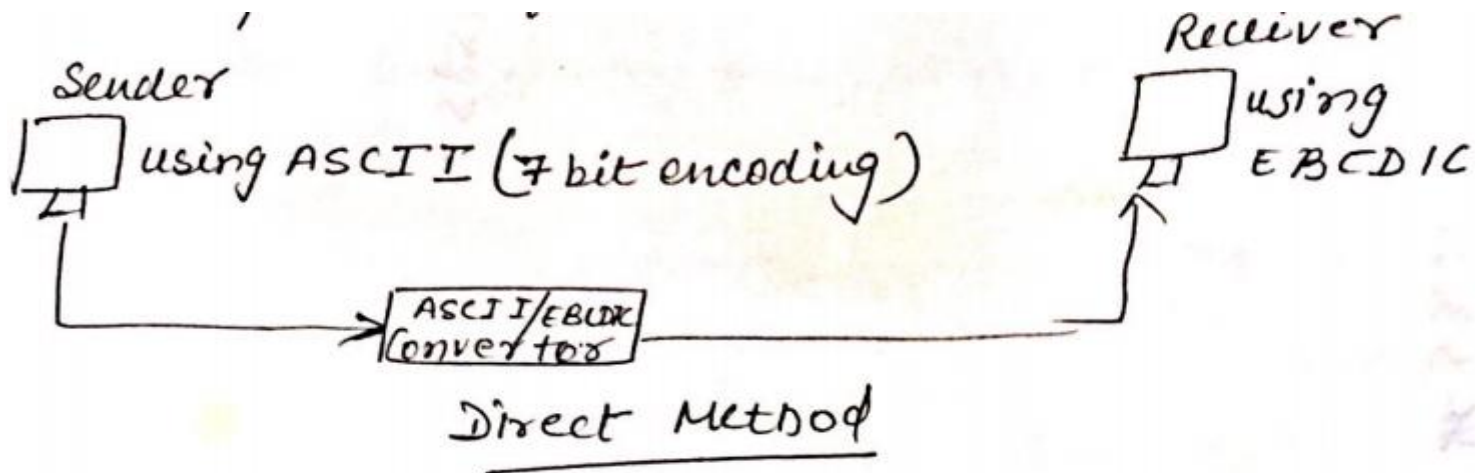 Sender
using ASCII (7 bit encoding)
Receiver
using
EBCDIC
ASCII/EBCDIC
Convertor
Direct Method